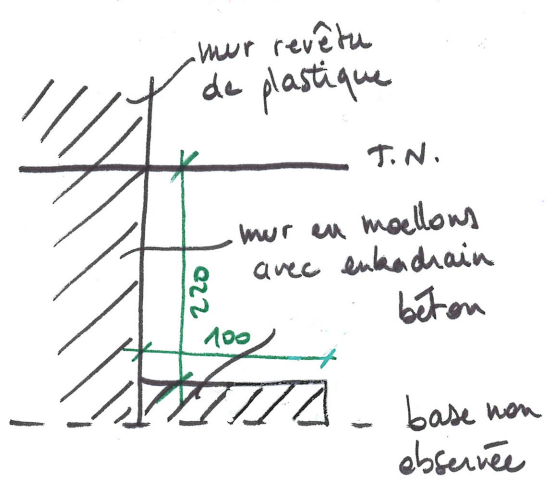 mur revêtu
de plastique
T.N.
mur en moellons
avec enkadrain
béton
220
100
base non
observée